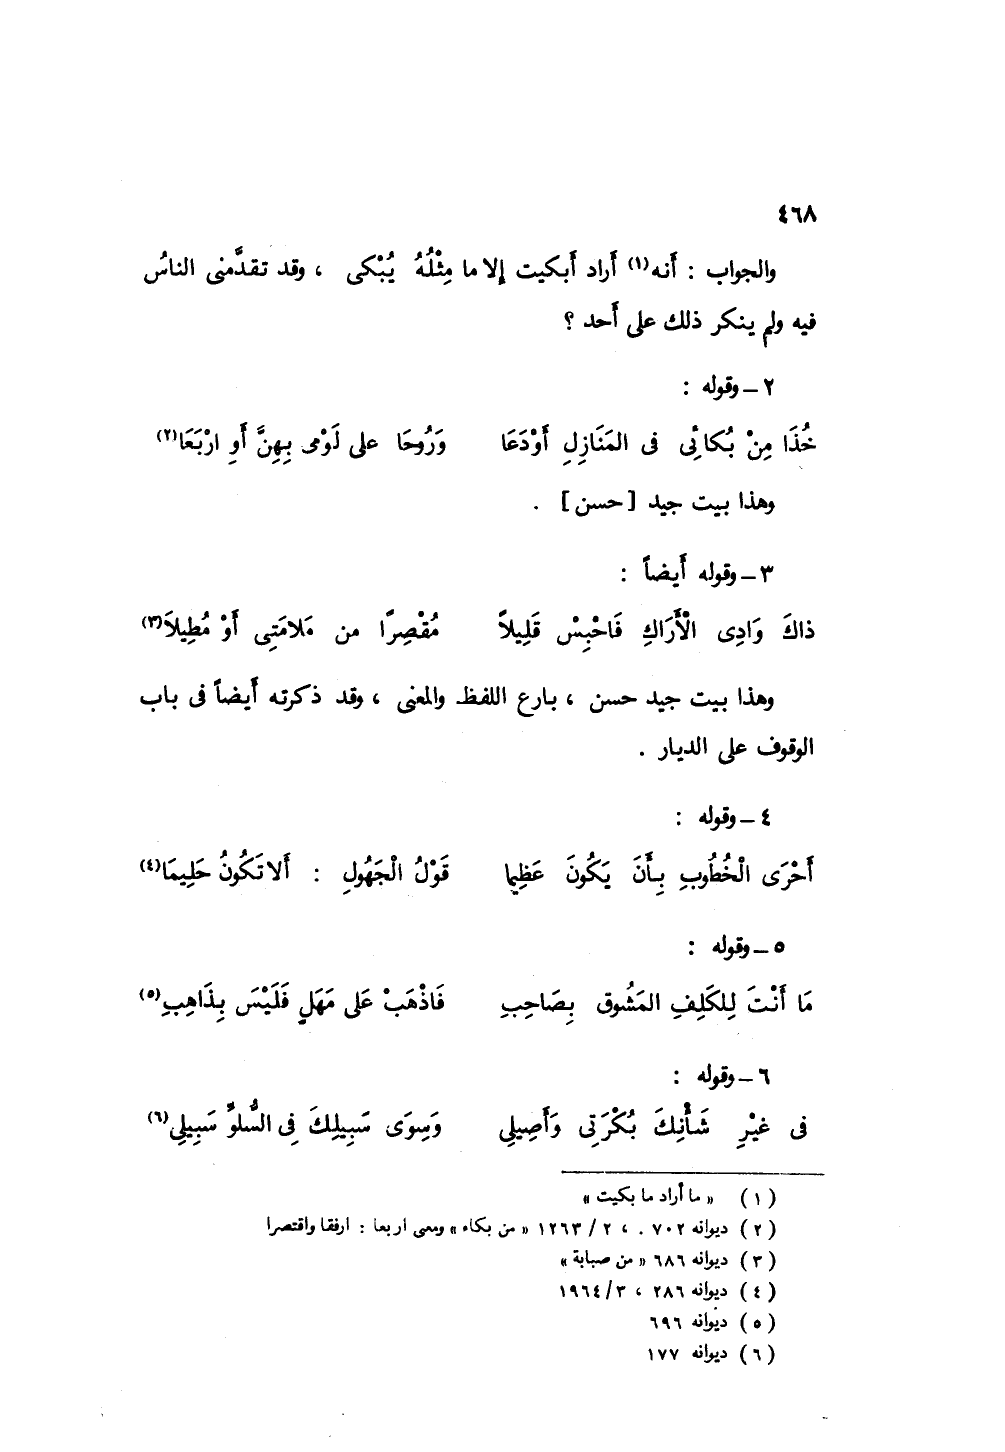 ٤٦٨
والجواب : أَنه(١) أَراد أَبكيت إلا ما مِثْلُهُ يُبْكى ، وقد تقدَّمنى الناسُ
فيه ولم ينكر ذلك على أَحد ؟
٢ – وقوله :
خُذَا مِنْ بُكائِى فى المَنَازِلِ أَوْدَعَا وَرُوحَا على لَوْمى بِهِنَّ أَوِ ارْبَعَا(٢)
وهذا بيت جيد [ حسن ] .
٣ – وقوله أَيضاً :
ذاكَ وَادِى الْأَرَاكِ فَاحْبِسْ قَلِيلاً مُقْصِرًا من مَلامَتِى أَوْ مُطِيلاَ(٣)
وهذا بيت جيد حسن ، بارع اللفظ والمعنى ، وقد ذكرته أَيضاً فى باب
الوقوف على الديار .
٤ – وقوله :
أَحْرَى الْخُطُوبِ بِأَنَ يَكُونَ عَظِيما قَوْلُ الْجَهُولِ : أَلا تَكُونُ حَلِيمَا(٤)
٥ – وقوله :
مَا أَنْتَ لِلكَلِفِ المَشُوق بِصَاحِبِ فَاذْهَبْ عَلى مَهَلٍ فَلَيْسَ بِذَاهِبِ(٥)
٦ – وقوله :
فى غيْرِ شَأْنِكَ بُكْرَتِى وَأَصِيلِى وَسِوَى سَبِيلِكَ فى السُّلوِّ سَبِيلِى(٦)
(١) « ما أراد ما بكيت »
(٢) ديوانه ٧٠٢ . ، ٢ / ١٢٦٣ « من بكاء » ومعى اربعا : ارفقا واقتصرا
(٣) ديوانه ٦٨٦ « من صبابة »
(٤) ديوانه ٢٨٦ ، ٣/ ١٩٦٤
(٥) ديوانه ٦٩٦
(٦) ديوانه ١٧٧